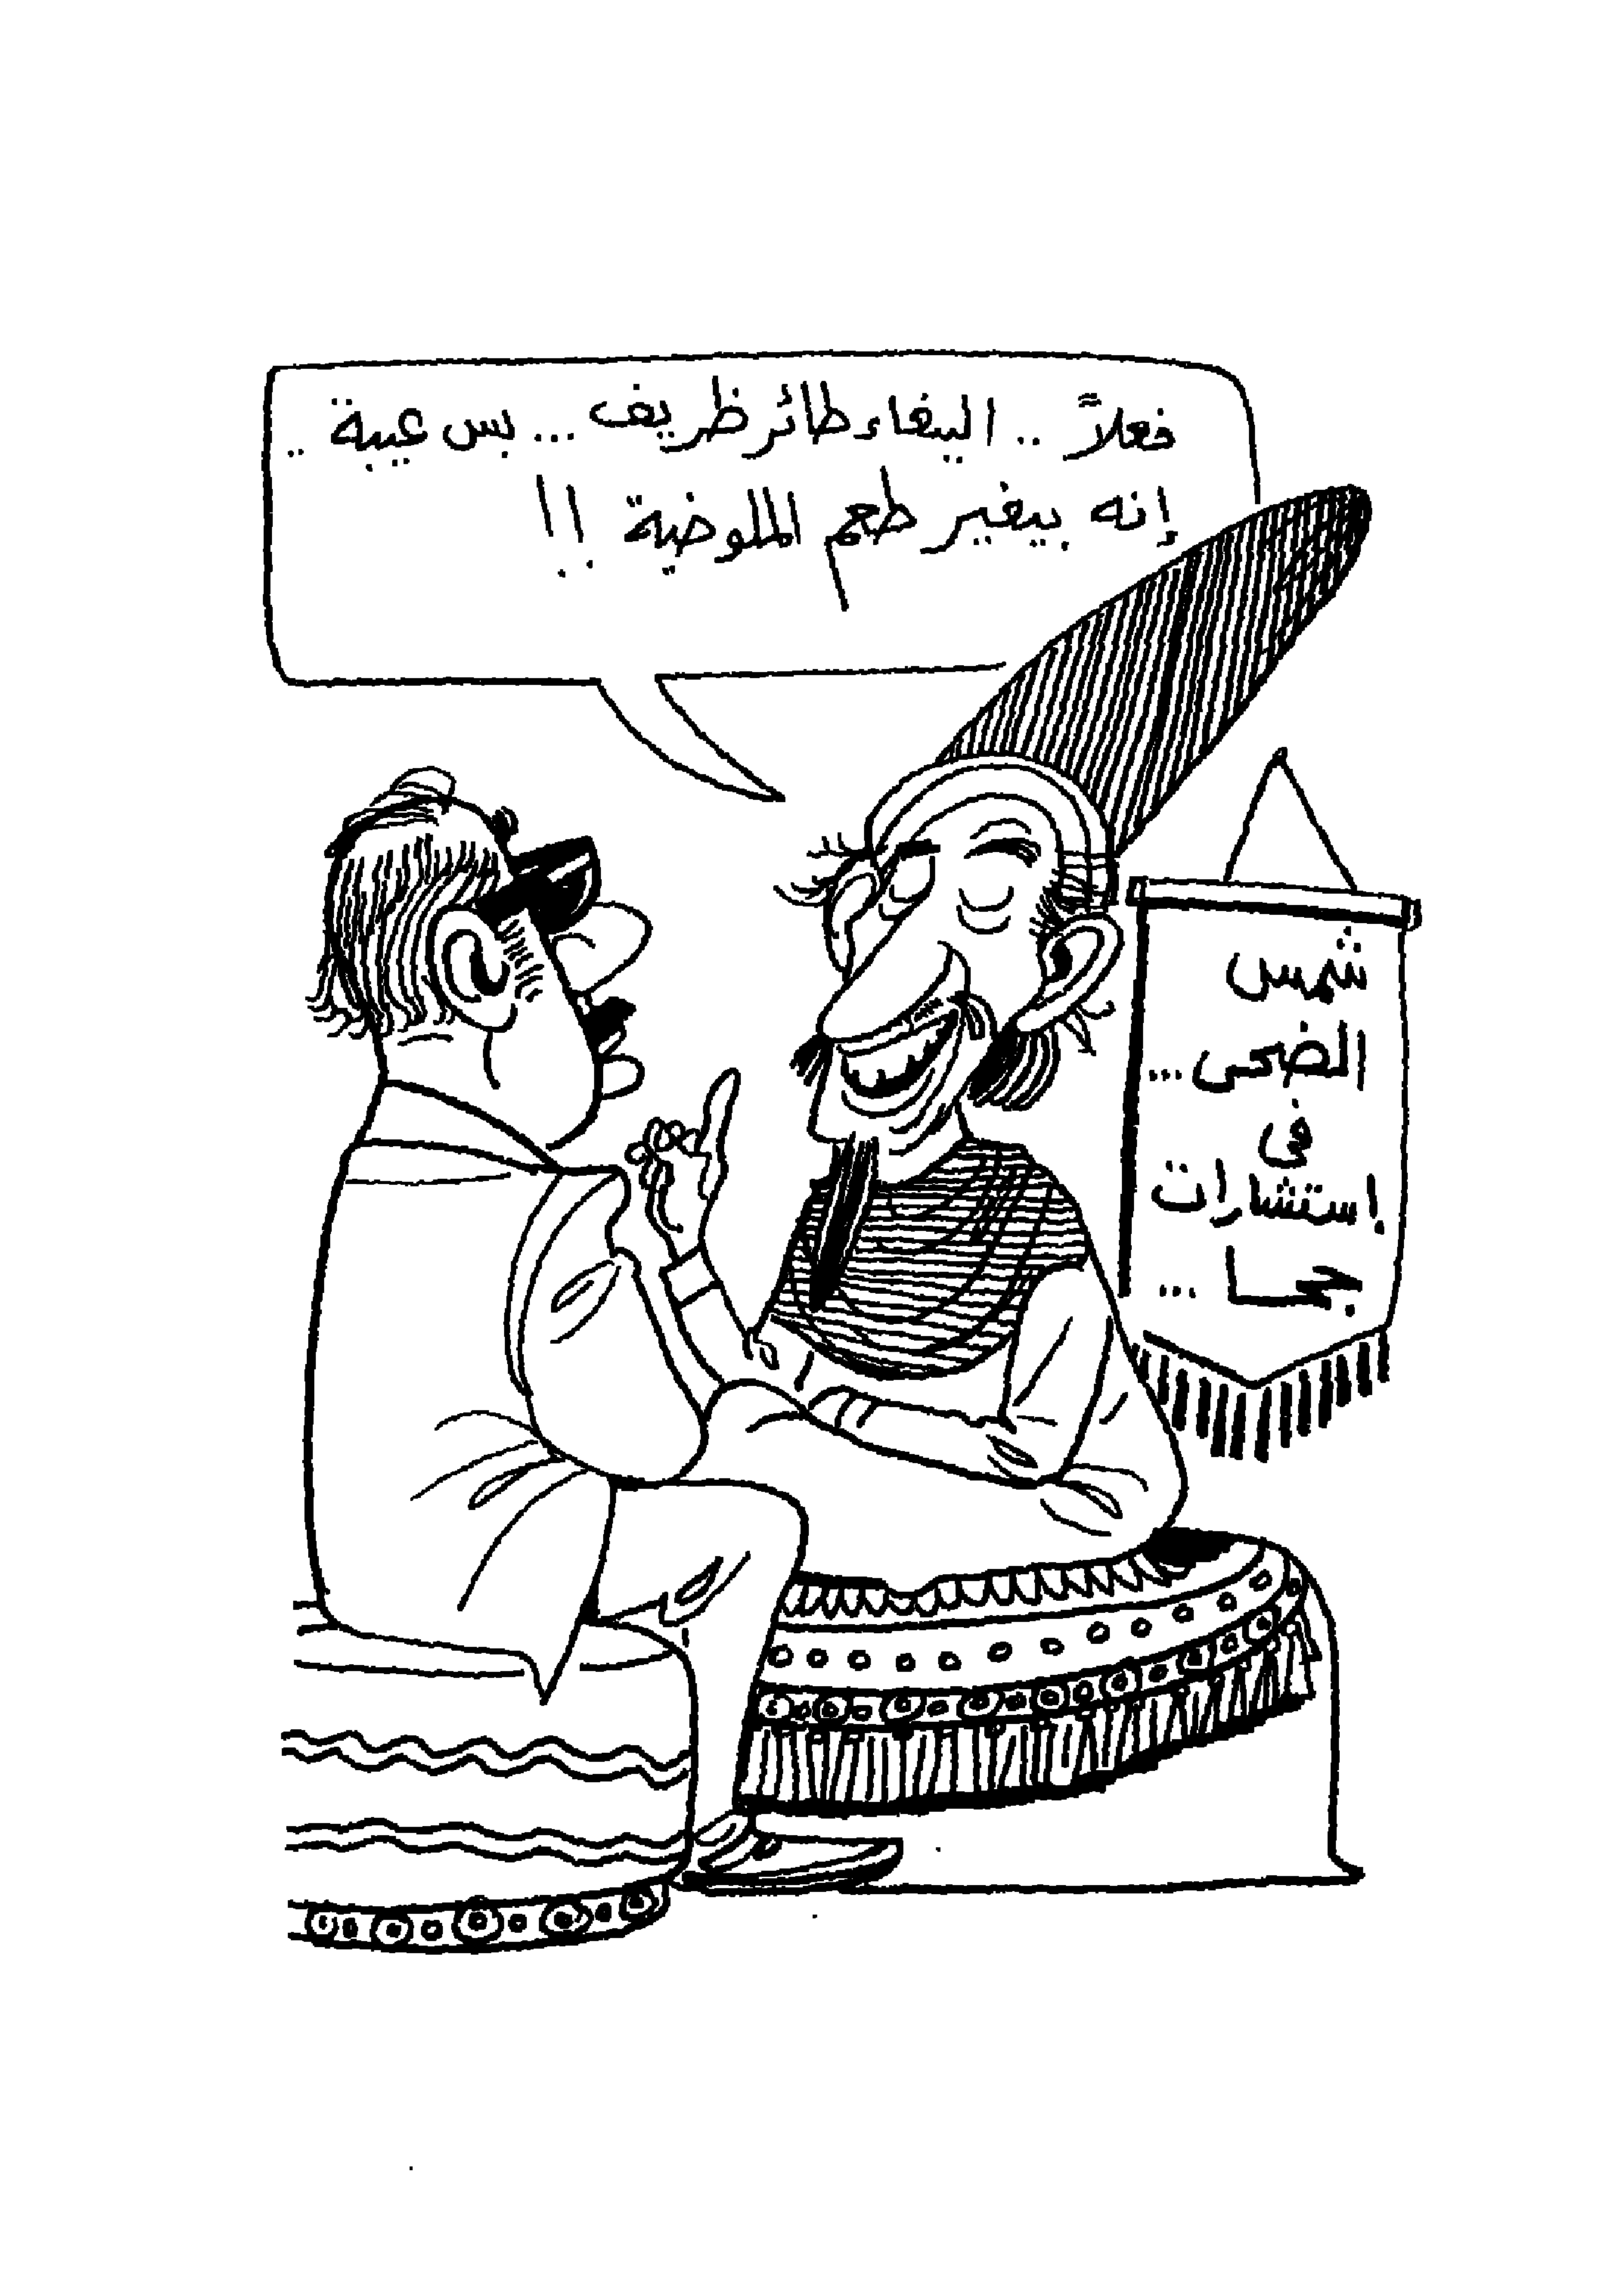 فعلاً .. الببغاء طائر ظريف ... بس عيبة ..
إنه بيغير طعم الملوخية !!
شمس
الضحى ...
فى
إستشارات
جحا ...